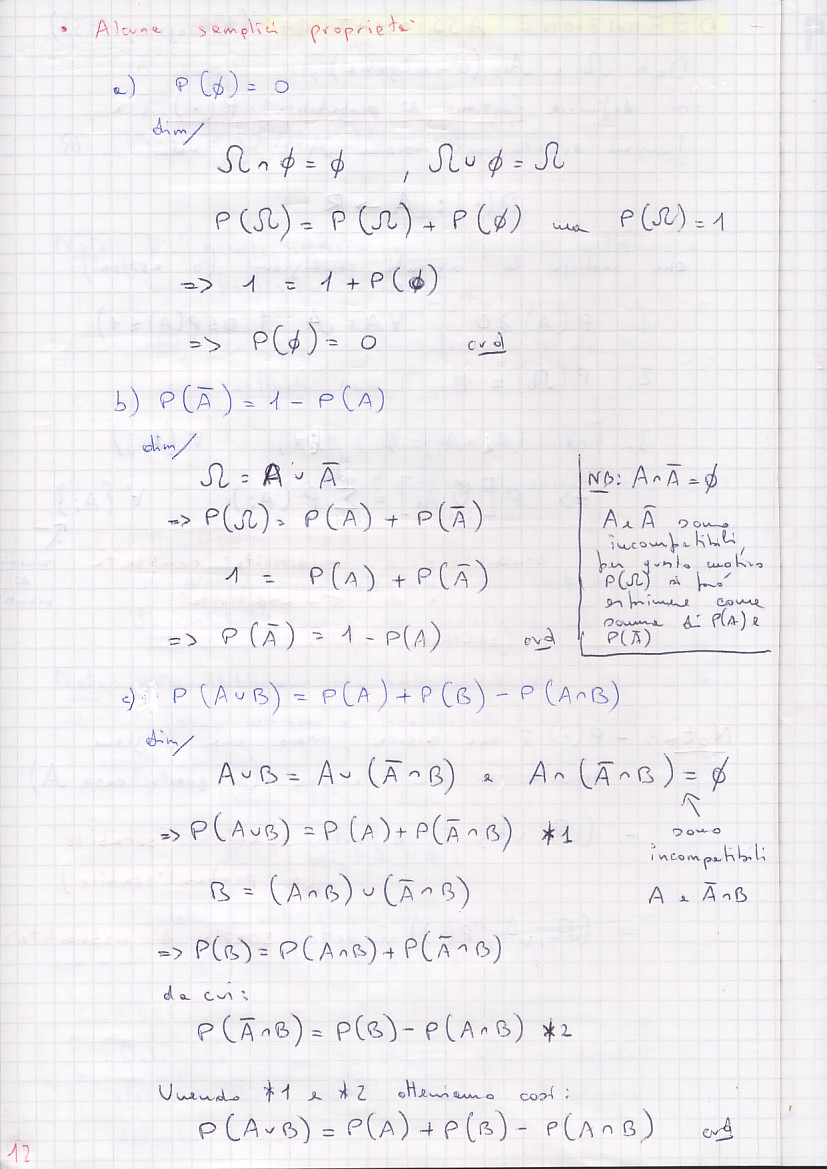 • Alcune semplici proprietà
a) P(ϕ) = 0
dim/
Ω ∩ ϕ = ϕ , Ω ∪ ϕ = Ω
P(Ω) = P(Ω) + P(ϕ) ma P(Ω) = 1
=> 1 = 1 + P(ϕ)
=> P(ϕ) = 0 cvd
b) P(Ā) = 1 - P(A)
dim/
Ω = A ∪ Ā
=> P(Ω) = P(A) + P(Ā)
1 = P(A) + P(Ā)
=> P(Ā) = 1 - P(A) cvd
NB: A ∩ Ā = ϕ
A e Ā sono
incompatibili,
per questo motivo
P(Ω) si può
esprimere come
somma di P(A) e
P(Ā)
c) P(A ∪ B) = P(A) + P(B) - P(A ∩ B)
dim/
A ∪ B = A ∪ (Ā ∩ B) e A ∩ (Ā ∩ B) = ϕ
=> P(A ∪ B) = P(A) + P(Ā ∩ B) *1
sono
incompatibili
A e Ā ∩ B
B = (A ∩ B) ∪ (Ā ∩ B)
=> P(B) = P(A ∩ B) + P(Ā ∩ B)
da cui:
P(Ā ∩ B) = P(B) - P(A ∩ B) *2
Unendo *1 e *2 otteniamo così:
P(A ∪ B) = P(A) + P(B) - P(A ∩ B) cvd
12